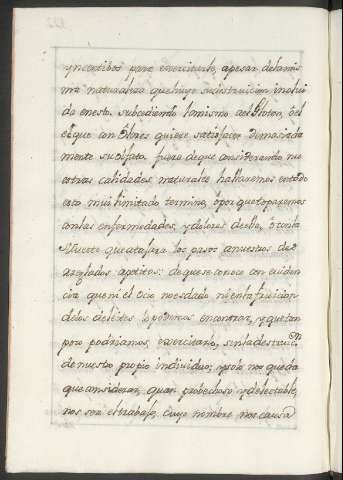 yncentibos para exercitarlo, apesar delamis
ma naturaleza que huye sudestruicion inclui
da enesto, subcediendo lomismo ael Gloton, ó el
el que con olores quiere satisfacer demasiada
mente su olfato. fuera de que considerando nu
estras calidades naturales hallaremos entodo
esto mui limitado termino, ó por que toparemos
con las enfermedades, y dolores de ello, ó con la
Muerte que atajara los pasos a nuestros des
arreglados apetitos: de que se conoce con eviden
cia que ni el Ocio nos es dado ni en la fruicion
de los deleites lo podemos encontrar, y que tam
poco podriamos, exercitarlo, sin la destruic.on
de nuestro propio individuo; y solo nos queda
que considerar, quan probechoso y delectable,
nos sea el trabajo, cuyo nombre nos causa